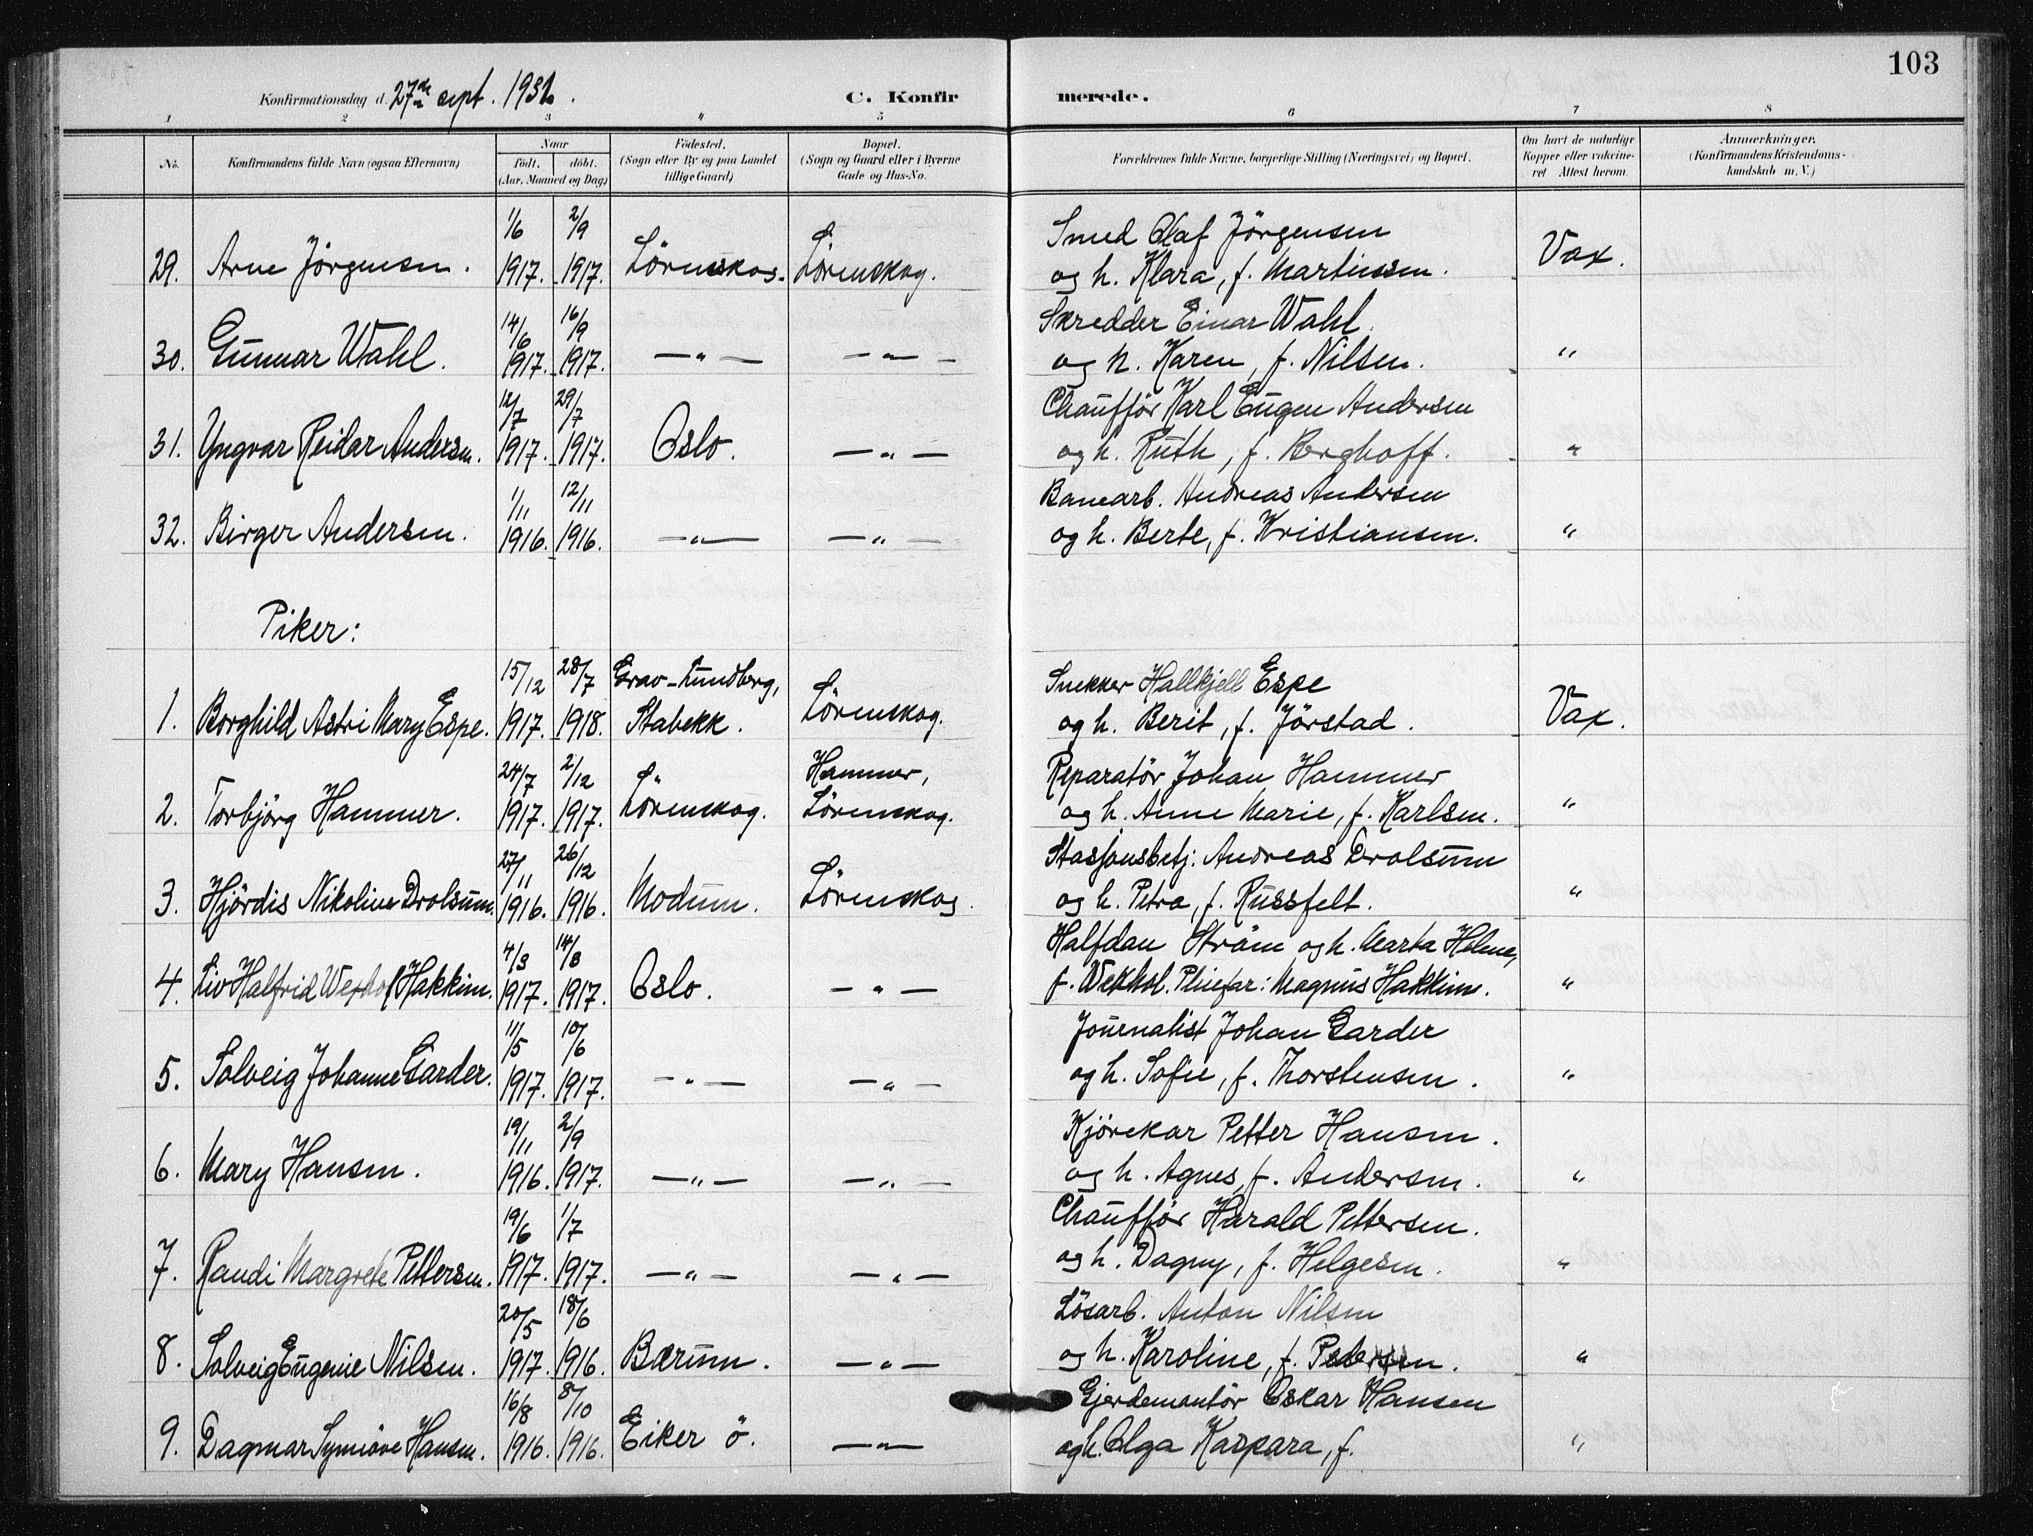 103
Konfirmationsdag d. 27de sept. 1931.
C. Konfirmerede.
1 2 3 4 5 6 7 8
No. Konfirmandens fulde Navn (ogsaa Efternavn) Naar født. døbt. (Aar, Maaned og Dag) Fødested. (Sogn eller By og paa Landet tillige Gaard) Bopæl. (Sogn og Gaard eller i Byerne Gade og Hus-No. Forældrenes fulde Navne, borgerlige Stilling (Næringsvei) og Bopæl. Om havt de naturlige Kopper eller vakcineret Attest herom. Anmærkninger. (Konfirmandens Kristendomskundskab m. V.)
1/6 2/9 Smed Olaf Jörgensen
29. Arne Jörgensen. 1917. 1917. Lörenskog. Lörenskog. og h. Klara, f. Martinssen. Vax.
14/6 16/9 Skredder Einar Wahl.
30. Gunnar Wahl. 1917. 1917. —"— —"— og h. Karen, f. Nilsen. "
12/7 29/7 Chaufför Karl Eugen Andersen
31. Yngvar Reidar Andersen. 1917. 1917. Oslo. —"— og h. Ruth, f. Berghoff. "
1/11 12/11 Banearb. Andreas Andersen
32. Birger Andersen. 1916. 1916. —"— —"— og h. Berte, f. Kristiansen. "
Piker:
15/12 28/7 Grav-Lundberg, Snekker Hallkjell Espe
1. Borghild Astri Mary Espe. 1917. 1918. Stabekk. Lörenskog. og h. Berit, f. Jörstad. Vax.
24/7 2/12 Hammer, Reparatör Johan Hammer
2. Torbjörg Hammer. 1917. 1917. Lörenskog. Lörenskog. og h. Anne Marie, f. Karlsen. "
27/11 26/12 Stasjonsbetj. Andreas Drolsum
3. Hjördis Nikoline Drolsum. 1916. 1916. Modum. Lörenskog. og h. Petra, f. Russfelt. "
4/3 14/8 Halfdan Ström og h. Marta Helene,
4. Liv Halfrid Hakkim. 1917. 1917. Oslo. —"— f. Wekhol. Pleiefar: Magnus Hakkim. "
11/5 10/6 Journalist Johan Garder
5. Solveig Johanne Garder. 1917. 1917. —"— —"— og h. Sofie, f. Thorstensen. "
19/11 2/9 Kjörekar Petter Hansen.
6. Mary Hansen. 1916. 1917. —"— —"— og h. Agnes, f. Andersen. "
19/6 1/7 Chaufför Harald Pettersen.
7. Randi Margrete Pettersen. 1917. 1917. —"— —"— og h. Dagny, f. Helgesen. "
20/5 18/6 Lösarb. Anton Nilsen
8. Solveig Eugenie Nilsen. 1917. 1916. Bærum. —"— og h. Karoline, f. Pedersen. "
16/8 8/10 Gjerdemontör Oskar Hansen
9. Dagmar Synnöve Hansen. 1916. 1916. Eiker ö. —"— og h. Olga Kaspara, f. "